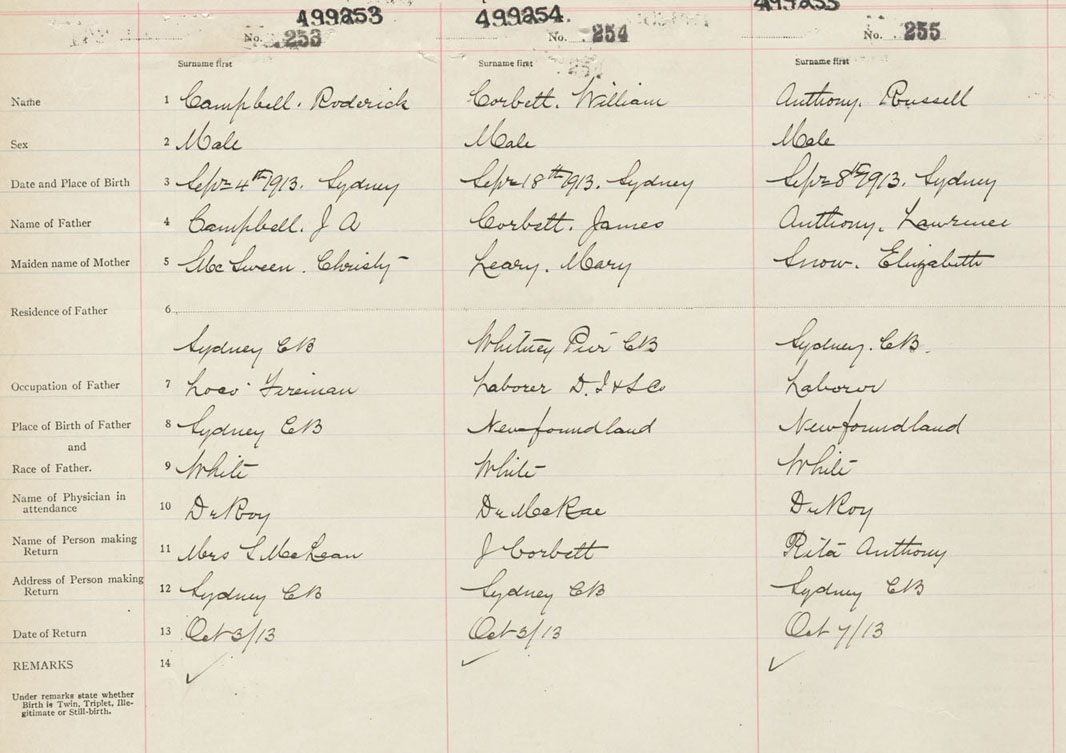 499253 499254. 499255
No. 253 No. 254 No. 255
Surname first Surname first Surname first
Name 1 Campbell. Roderick Corbett. William Anthony. Russell
Sex 2 Male Male Male
Date and Place of Birth 3 Sept 4th 1913. Sydney Sept 18th 1913. Sydney Sept 8th 1913. Sydney
Name of Father 4 Campbell. J A Corbett. James Anthony. Lawrence
Maiden name of Mother 5 McSween. Christy Leary. Mary Snow. Elizabeth
Residence of Father 6
Sydney CB Whitney Pier CB Sydney. CB.
Occupation of Father 7 Loco Fireman Laborer D. I & S Co Laborer
Place of Birth of Father 8 Sydney CB Newfoundland Newfoundland
and
Race of Father. 9 White White White
Name of Physician in
attendance 10 Dr Roy Dr McRae Dr Roy
Name of Person making
Return 11 Mrs S McLean J Corbett Rita Anthony
Address of Person making
Return 12 Sydney CB Sydney CB Sydney CB
Date of Return 13 Oct 3/13 Oct 3/13 Oct 7/13
REMARKS 14 ✓ ✓ ✓
Under remarks state whether
Birth is Twin, Triplet, Ille-
gitimate or Still-birth.